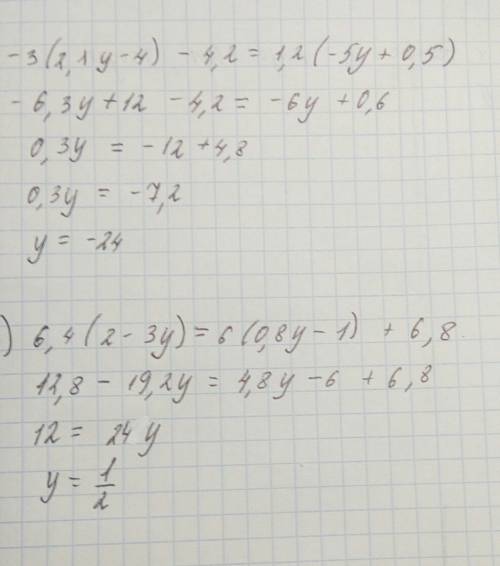 -3(2,1y-4) - 4,2 = 1,2(-5y+0,5)
-6,3y+12 -4,2 = -6y +0,6
0,3y = -12 +4,8
0,3y = -7,2
y = -24
) 6,4(2-3y) = 6(0,8y-1) + 6,8.
12,8 - 19,2y = 4,8y -6 + 6,8
12 = 24y
y = 1/2